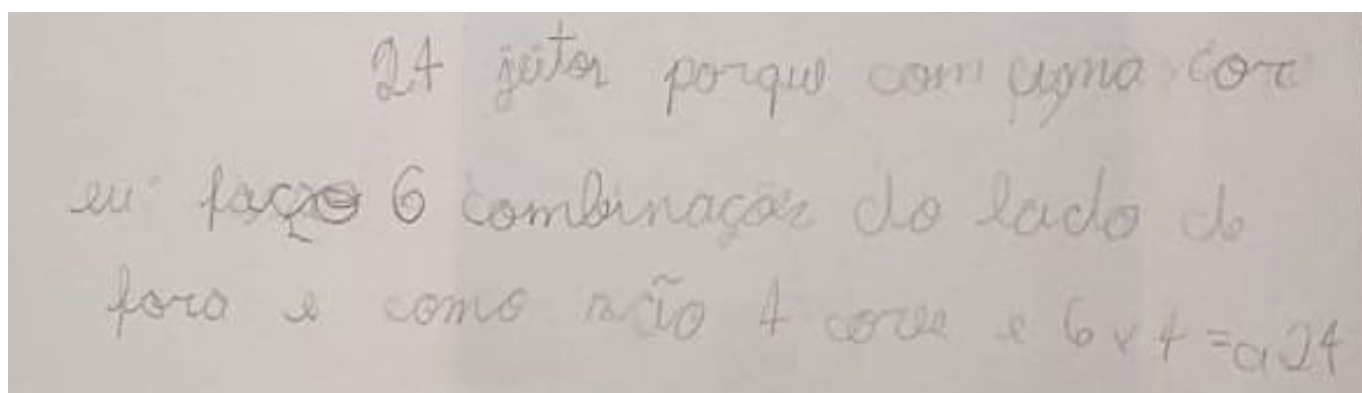 24 jeitos porque com uma cor
eu faço 6 combinações do lado de
fora e como são 4 cores e 6 x 4 = a 24